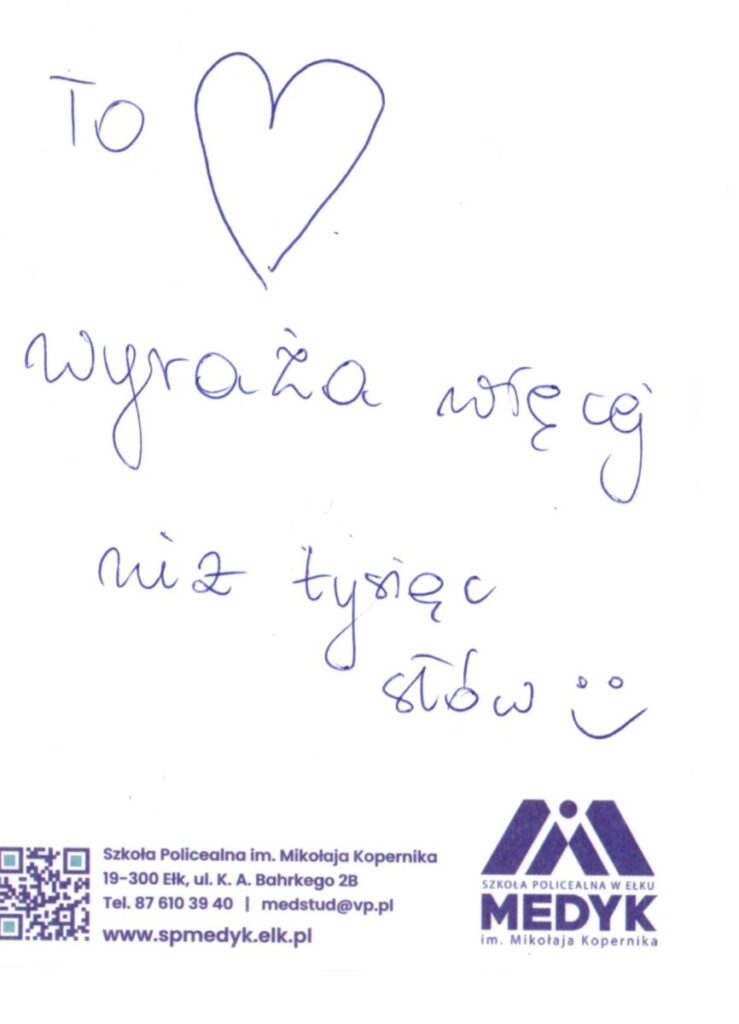 To
wyraża więcej
niż tysięc
słów
Szkoła Policealna im. Mikołaja Kopernika
19-300 Ełk, ul. K. A. Bahrkego 2B
Tel. 87 610 39 40 | medstud@vp.pl
www.spmedyk.elk.pl
SZKOŁA POLICEALNA W EŁKU
MEDYK
im. Mikołaja Kopernika